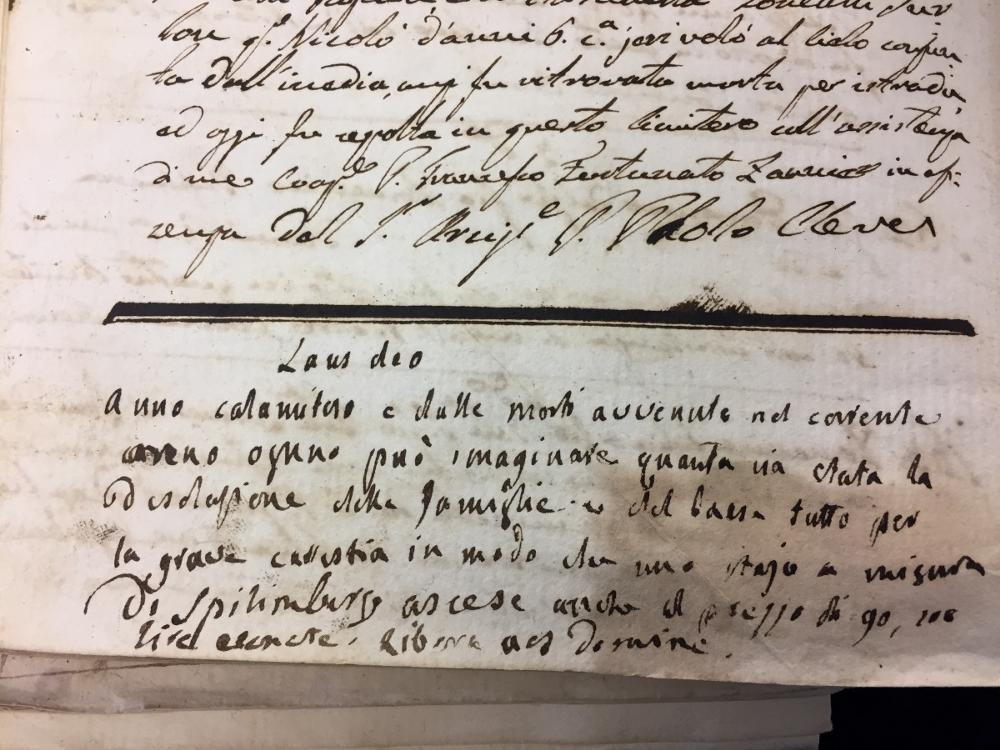 lore q. Nicolò d'anni 6. c.a jeri volò al Cielo consun
ta dall'inedia, anzi fu ritrovata morta per istrada
ed oggi fu sepolta in questo Cimitero coll'assistenza
di me Coop.e P. Francesco Fortunato Zannier in as:
senza del S.r Arcip.e P. Paolo Cleva
Laus deo
Anno calamitoso e dalle morti avvenute nel corrente
anno ognuno può imaginare quanta sia stata la
Desolazione delle famiglie e del Paese tutto per
la grave carestia in modo che uno stajo a misura
Di Spilimburgo ascese anche al prezzo di 90, 100
lire venete. Libera nos Domine.